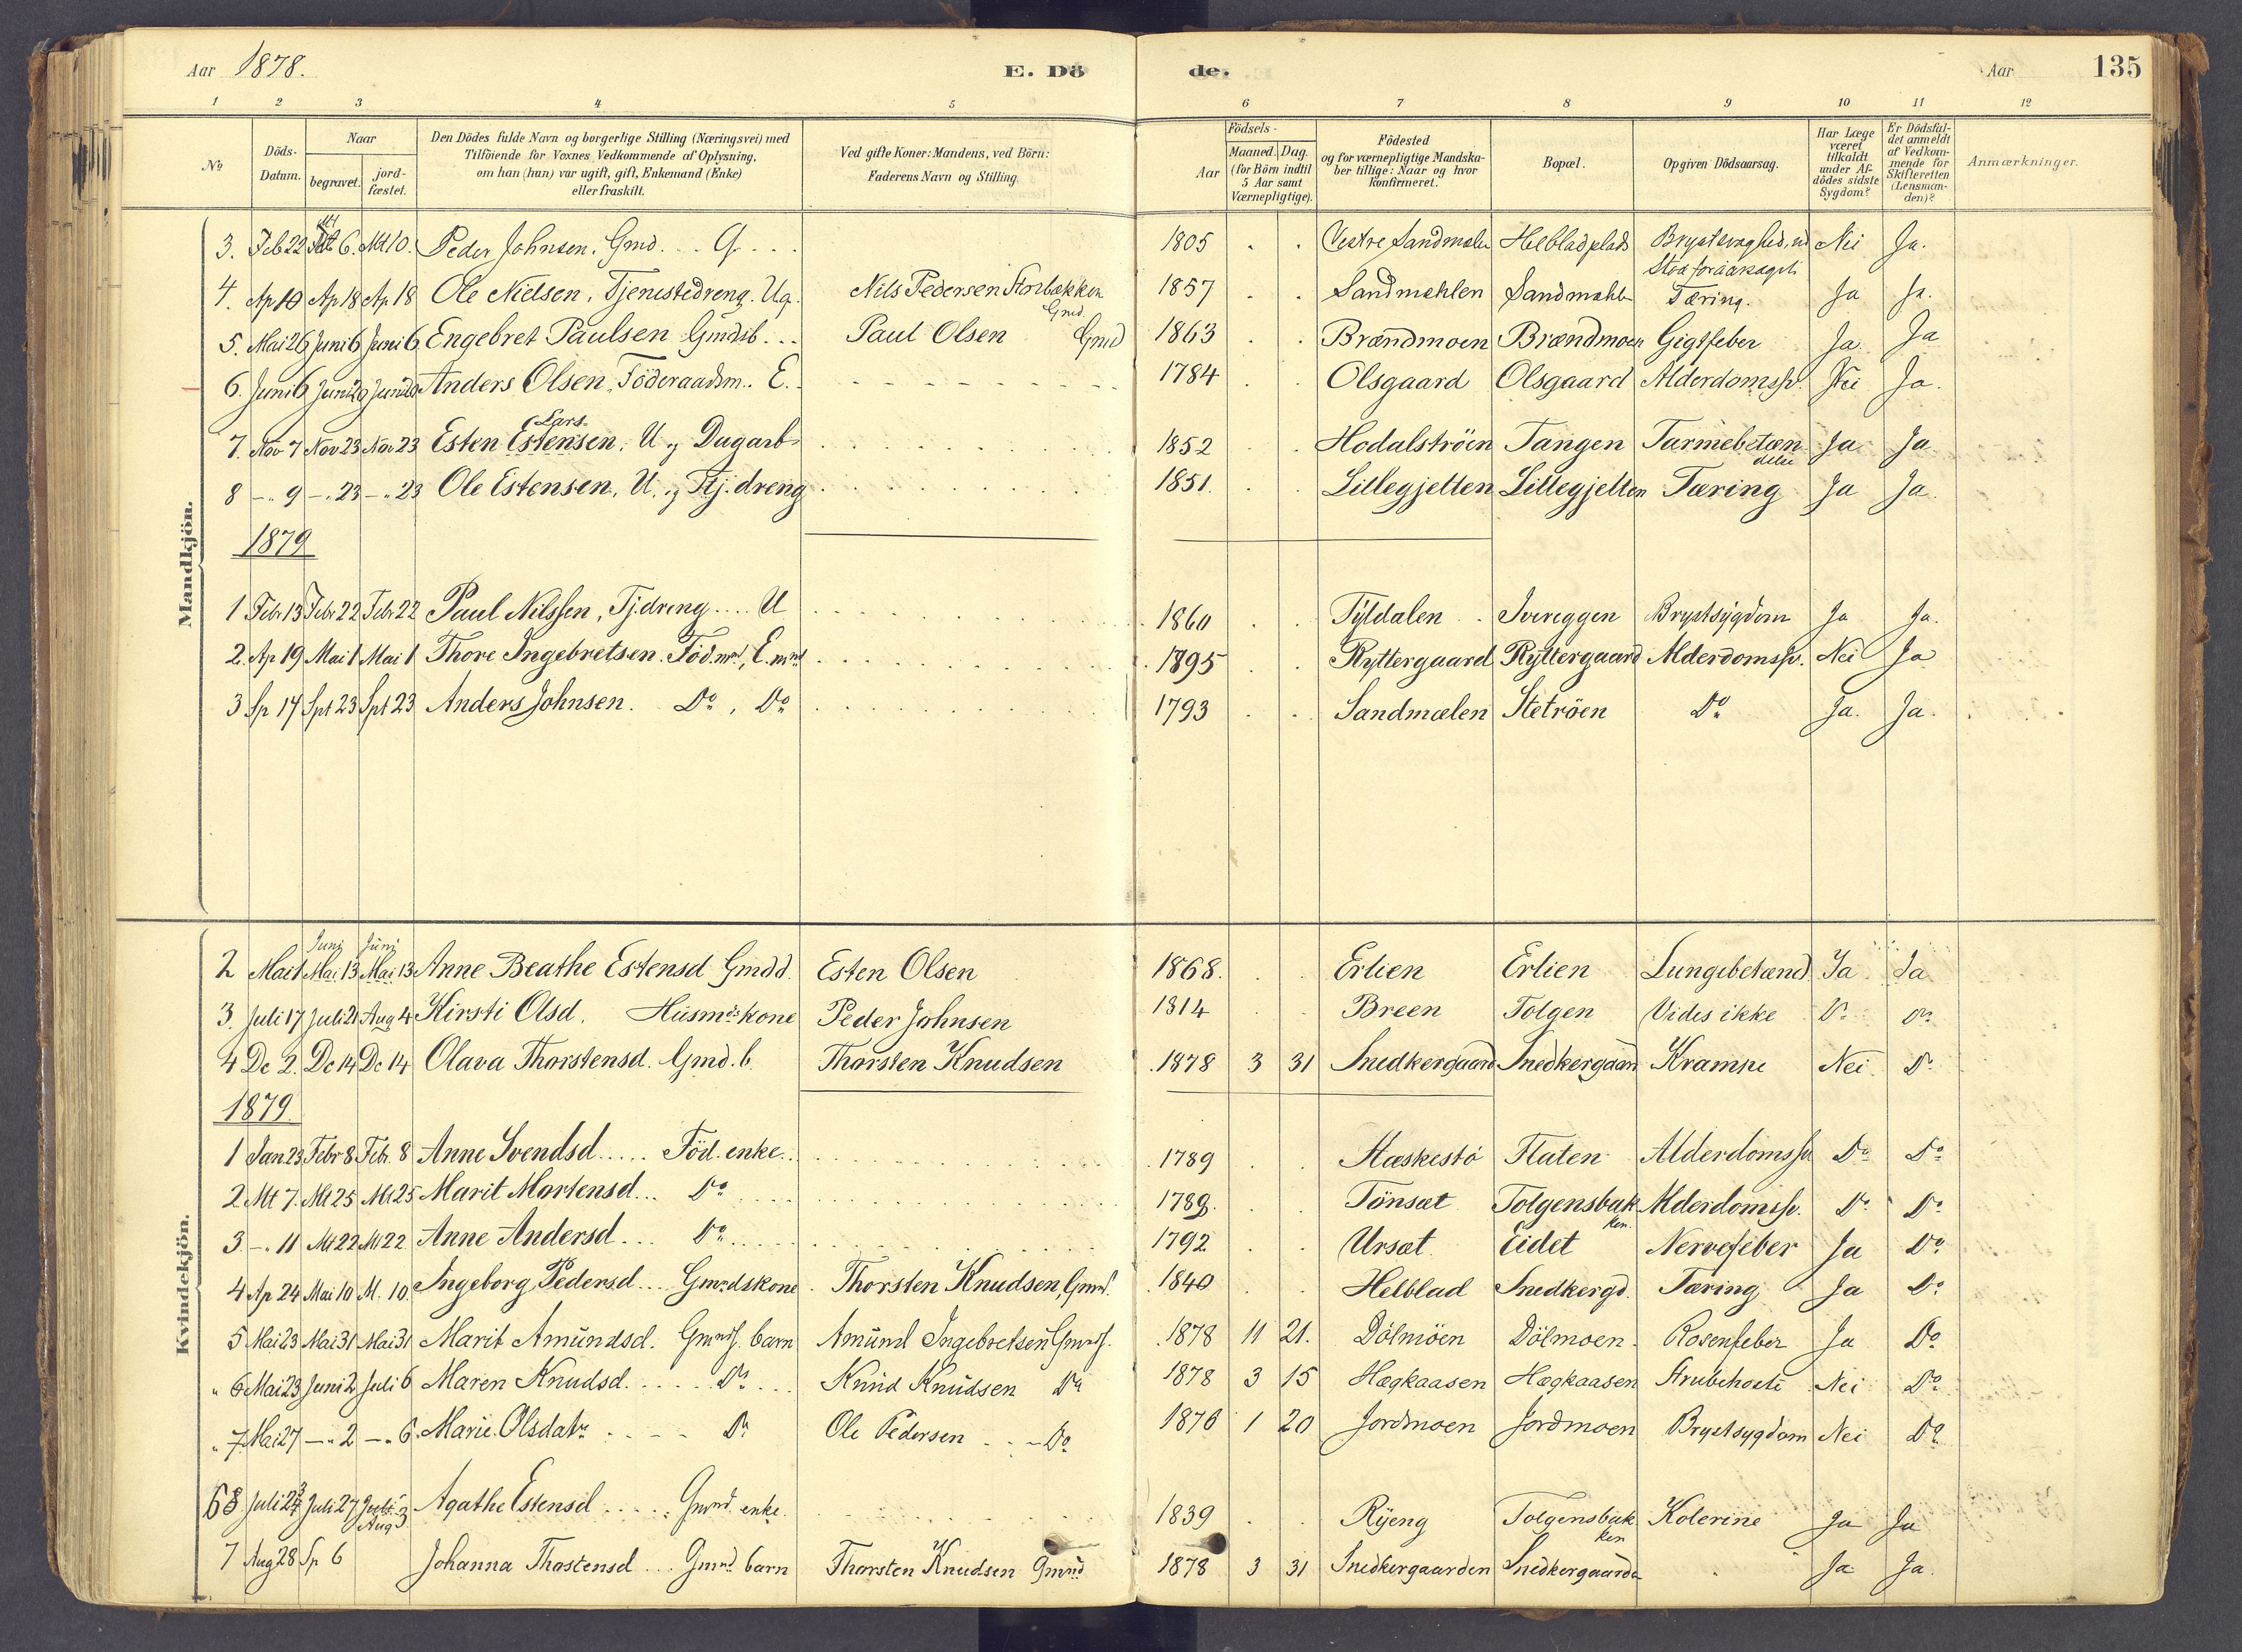 Aar 1878. E. Dö de. Aar 135
1 2 3 4 5 6 7 8 9 10 11 12
No
Döds-Datum.
Naar
begravet.
jord-fæstet.
Den Dödes fulde Navn og borgerlige Stilling (Næringsvei) med
Tilföiende for Voxnes Vedkommende af Oplysning,
om han (hun) var ugift, gift, Enkemand (Enke)
eller fraskilt.
Ved gifte Koner: Mandens, ved Börn:
Faderens Navn og Stilling.
Födsels-
Aar
Maaned. Dag.
(for Börn indtil
5 Aar samt
Værnepligtige).
Födested
og for værnepligtige Mandska-
ber tillige: Naar og hvor
konfirmeret.
Bopæl.
Opgiven Dödsaarsag.
Har Læge
været
tilkaldt
under Af-
dödes sidste
Sygdom?
Er Dödsfal-
det anmeldt
af Vedkom-
mende for
Skifteretten
(Lensman-
den)?
Anmærkninger.
Mandkjön.
3. Feb 22 Mt 6. Mt 10. Peder Johnsen. Gmd. . . G. . . 1805 . . Vestre Sandmælen Helbladplads Brystsvaghed, Nei Ja.
4. Ap 10 Ap 18 Ap 18 Ole Nielsen, Tjenestedreng. Ug. Nils Pedersen Storbækken Gmd. 1857 . . Sandmehlen Sandmehlen Tæring. Ja Ja.
5. Mai 26 Juni 6 Juni 6 Engebret Paulsen Gmdsb. . . Paul Olsen Gmd 1863 . . Brændmoen Brændmoen Gigtfeber Ja Ja
6. Juni 6 Juni 20 Juni 20 Anders Olsen, Föderaadsm. E. 1784 . . Olsgaard Olsgaard Alderdomssv. Nei Ja.
Lars-
7. Nov 7 Nov 23 Nov 23 Esten Estensen, U., Dagarb 1852 . . Hodalströen Tangen Tarmebetændelse Ja Ja
8 -" 9 -" 23 -" 23 Ole Estensen, U., Tj. dreng 1851. . . Lillegjelten Lillegjelten Tæring Ja Ja.
1879
1 Febr 13 Febr 22 Febr 22 Paul Nilssen, Tj. dreng .... U 1860 . . Tyldalen Ivereggen Brystsygdom Ja Ja.
2. Ap 19 Mai 1 Mai 1 Thore Ingebretsen. Föd.md, E.md 1795 . . Ryttergaard Ryttergaard Alderdomssv. Nei Ja
3 Sp 14 Spt 23 Spt 23 Anders Johnsen. Do, Do 1793 . . Sandmælen Stetröen Do Ja. Ja.
Kvindekjön.
Juni Juni
2 Mai 1 Mai 13 Mai 13 Anne Beathe Estensd Gmdd. Esten Olsen 1868. . . Erlien Erlien Lungebetænd. Ja Ja
3. Juli 17 Juli 21 Aug 4 Kirsti Olsd. Husmds kone Peder Johnsen 1814 . . Breen Tolgen Vides ikke Do Do
4 Dc 2. Dc 14 Dc 14 Olava Thorstensd. Gmd. b. Thorsten Knudsen 1878 3 31 Snedkergaard Snedkergaard Krampe Nei Do
1879.
1 Jan. 23. Febr 8 Feb. 8 Anne Svendsd ..... Föd. enke 1789 . . Flaten Alderdomssv Do Do
2 Mt 7. Mt 25 Mt 25 Marit Mortensd... Do 1789. . . Tönsæt Tolgensbakken. Alderdomssv. Do Do
3. -" 11 Mt 22 Mt 22 Anne Andersd ... Do 1792 . . Ursæt Eidet Nervefeber Ja Do
4 Ap 24 Mai 10 M. 10. Ingeborg Pedersd ... Gmdskone Thorsten Knudsen, Gmd. 1840 . . Helblad Snedkergd. Tæring Ja Do
5 Mai 23 Mai 31 Mai 31 Marit Amundsd. barn Amund Ingebretsen 1878 11 21. Dölmöen Dölmoen. Rosenfeber Ja Do
" 6 Mai 23 Juni 2 Juli 6 Maren Knudsd. .... Do ... Knud Knudsen Do 1878 3 15 Hægkaasen Hægkaasen Strubehoste Nei Do
" 7 Mai 27 -" 2 -" 6. Marie Olsdatr .... Do Ole Pedersen . . Do 1876 1 20 Jordmoen Jordmoen Brystsygdom Nei Do
68 Juli 23 Juli 27 Aug 3 Agathe Estensd ..... Gmd. enke. 1839 . . Ryeng Tolgensbakken Kolerine Ja Ja
7 Aug 28 Sp 6 Johanna Thostensd ... Gmd barn Thorsten Knudsen Gmd 1878 3 31 Snedkergaarden Snedkergaarden . Ja Ja.